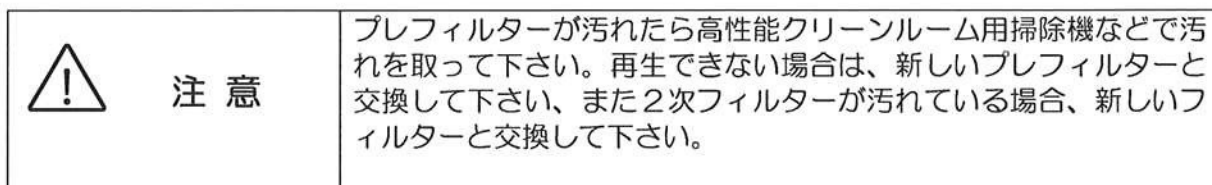 注意
プレフィルターが汚れたら高性能クリーンルーム用掃除機などで汚
れを取って下さい。再生できない場合は、新しいプレフィルターと
交換して下さい、また２次フィルターが汚れている場合、新しいフ
ィルターと交換して下さい。